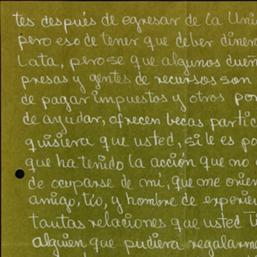 tes después de egresar de la Uni
pero eso de tener que deber diner
lata, pero se que algunos dueñ
presas y gentes de recursos son
de pagar impuestos y otros por
de ayudar, ofrecen becas partic
quisiera que usted, si le es po
que ha tenido la acción que no
de ocuparse de mí, que me orien
amigo, tío, y hombre de experie
tantas relaciones que usted ti
alguien que pudiera regalarme